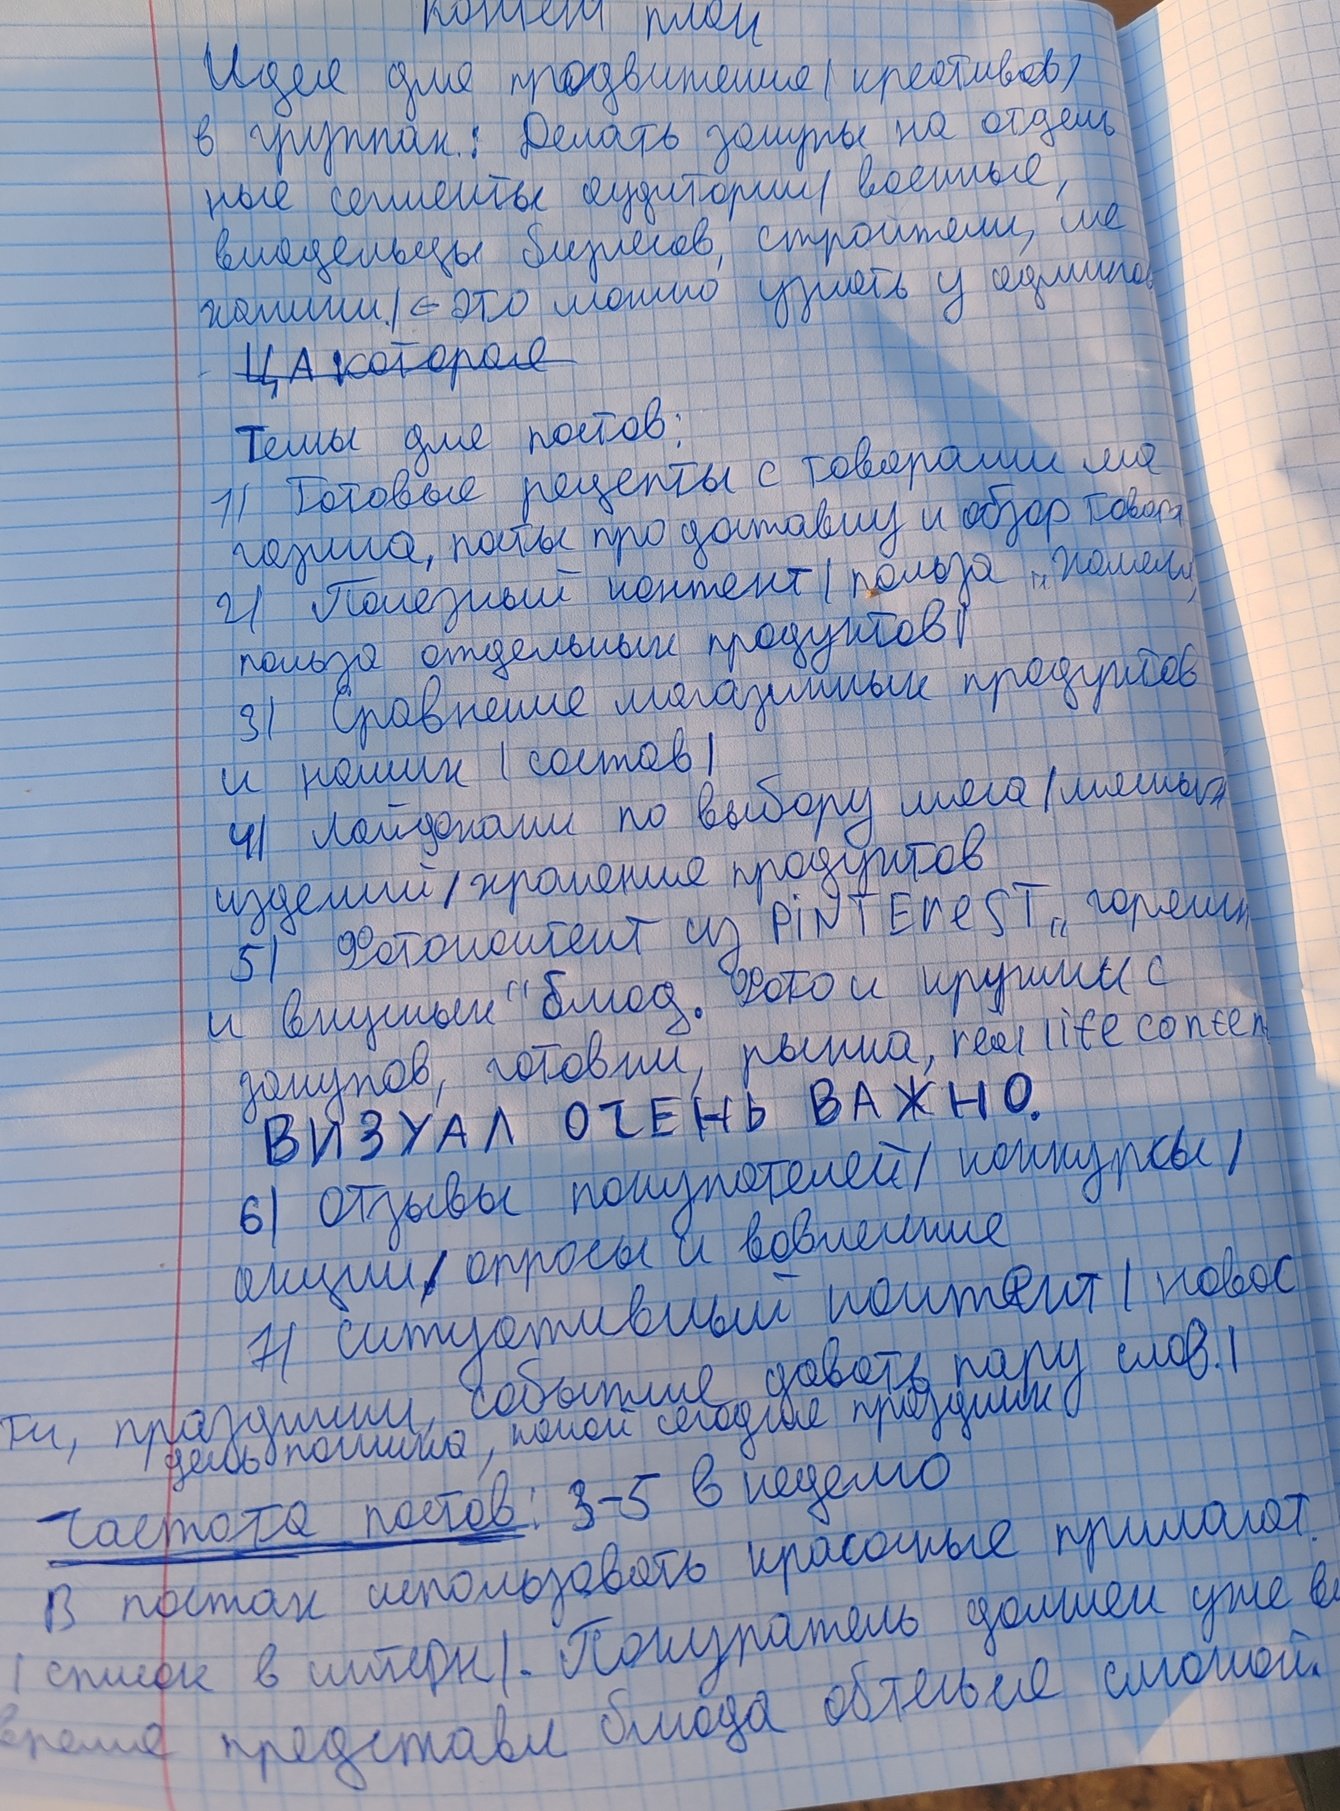 Контент план
Идея для продвижения (креативов)
в группах.: Делать закупы на отдель
ные сегменты аудитории (военные,
владельцы бизнесов, строители, ме
ханики.) ← это можно узнать у админов
ЦА которая
Темы для постов:
1) Готовые рецепты с товарами ма
газина, посты про доставку и обзор товара
2) Полезный контент (польза
польза отдельных продуктов)
3) Сравнение магазинных продуктов
и наших (состав)
4) Лайфхаки по выбору мяса/мясных
изделий/хранение продуктов
5) Фотоконтент из PiNTEreST „горячих
и вкусных“ блюд. Фото и кружки с
закупов, готовки, рынка, real life conten
ВИЗУАЛ ОЧЕНЬ ВАЖНО.
6) Отзывы покупателей/конкурсы/
акции/опросы и вовлечение
7) Ситуативный контент (новос
ти, праздники, события давать пару слов.)
день пошива, какой сегодня праздник
Частота постов: 3-5 в неделю
В постах использовать красочные прилагат.
(список в интерн). Покупатель должен уже во
время представл блюда обтечься слюной.